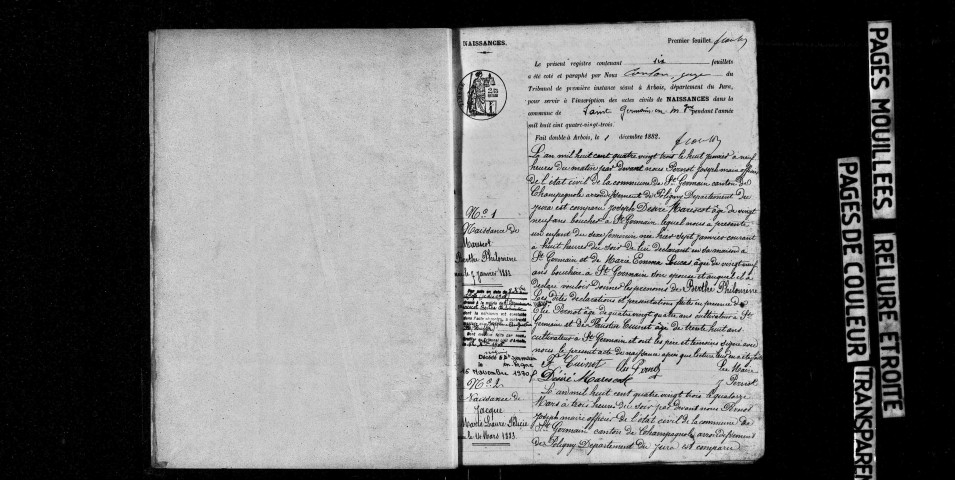 NAISSANCES.
Premier feuillet.
Le présent registre contenant six feuillets
a été coté et paraphé par Nous juge du
Tribunal de première instance séant à Arbois, département du Jura,
pour servir à l'inscription des actes civils de NAISSANCES dans la
commune de Saint Germain en m. pendant l'année
mil huit cent quatre-vingt-trois.
Fait double à Arbois, le 1 décembre 1882.
L'an mil huit cent quatre vingt trois le huit janvier à neuf
heures du matin par devant nous Pernot Joseph maire officier
de l'état civil de la commune de St Germain canton de
Champagnole arrondissement de Poligny Département du
Jura est comparu Joseph Désiré Marescot âgé de vingt
neuf ans boucher à St Germain lequel nous a présenté
un enfant du sexe féminin née hier sept janvier courant
à huit heures du soir de lui déclarant en sa maison à
St Germain et de Marie Emma Lucas âgée de vingt neuf
ans bouchère à St Germain son épouse et auquel il a
déclaré vouloir donner les prénoms de Berthe Philomène
Les dites déclarations et présentations faites en présence de
Elie Pernot âgé de quatre vingt quatre ans cultivateur à St
Germain et de Faustin Cuinet âgé de trente huit ans
cultivateur à St Germain et ont les père et témoins signé avec
nous le présent acte de naissance après que lecture leur en a été faite
F. Cuinet Le Maire
Désiré Marescot J. Pernot
No 1
Naissance de
Marescot
Berthe Philomène
le 7 janvier 1883
Décédée à St Germain
en M.gne
16 Novembre 1970
No 2
Naissance de
Jacque
Marie Laure
le 14 Mars 1883.
L'an mil huit cent quatre vingt trois le quatorze
Mars à trois heures du soir par devant nous Pernot
Joseph maire officier de l'état civil de la commune de
St Germain canton de Champagnole arrondissement
de Poligny Département du Jura est comparu
PAGES MOUILLEES
RELIURE ETROITE
PAGES DE COULEUR
TRANSPAREN